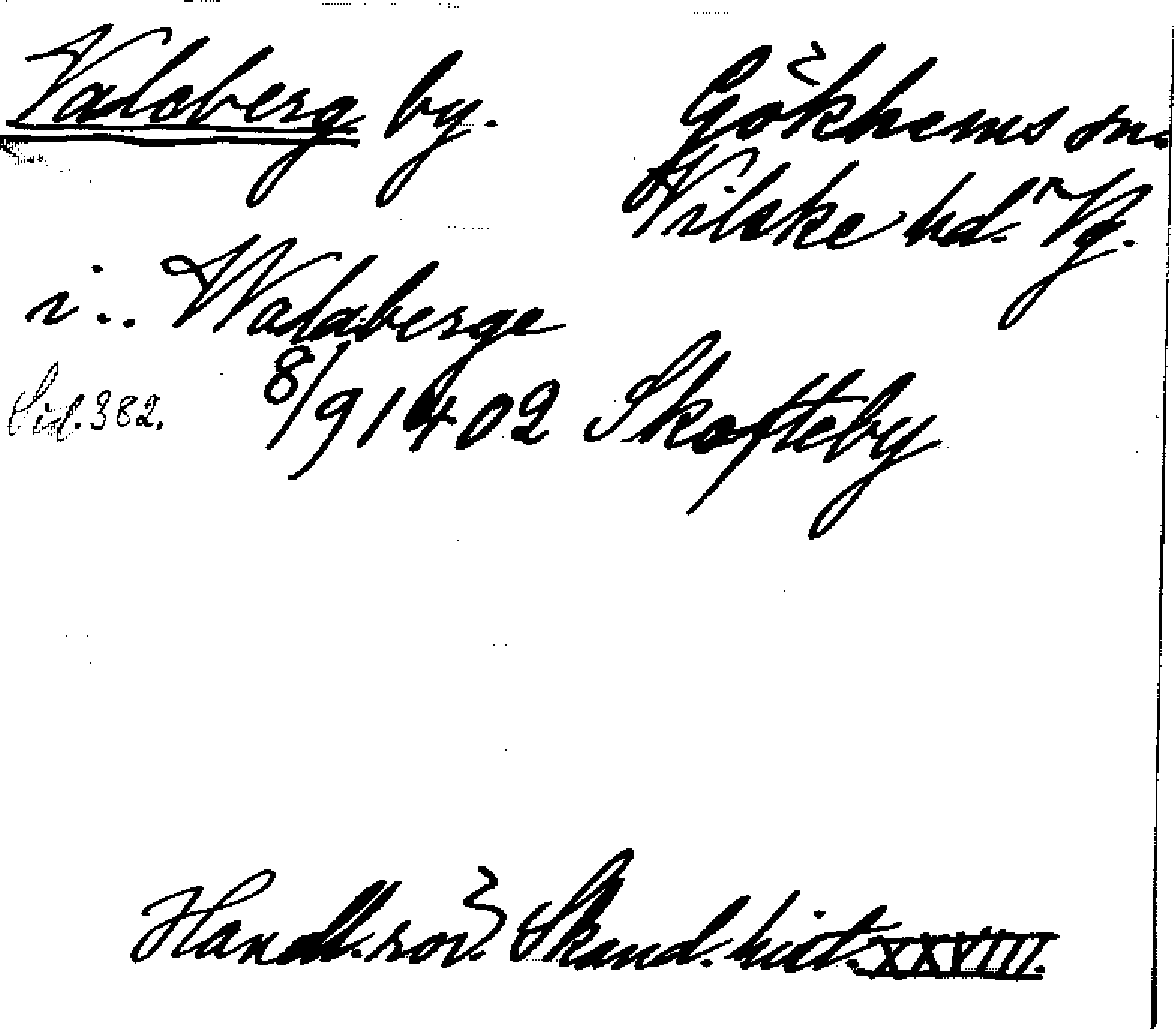 Valsberg by.
Gökhems sn.
Vilske hd. Vg.
i .. Walsberge
Sid. 382.
8/9 1402 Skofteby
Handl. rör. Skand. hist. XXVIII.